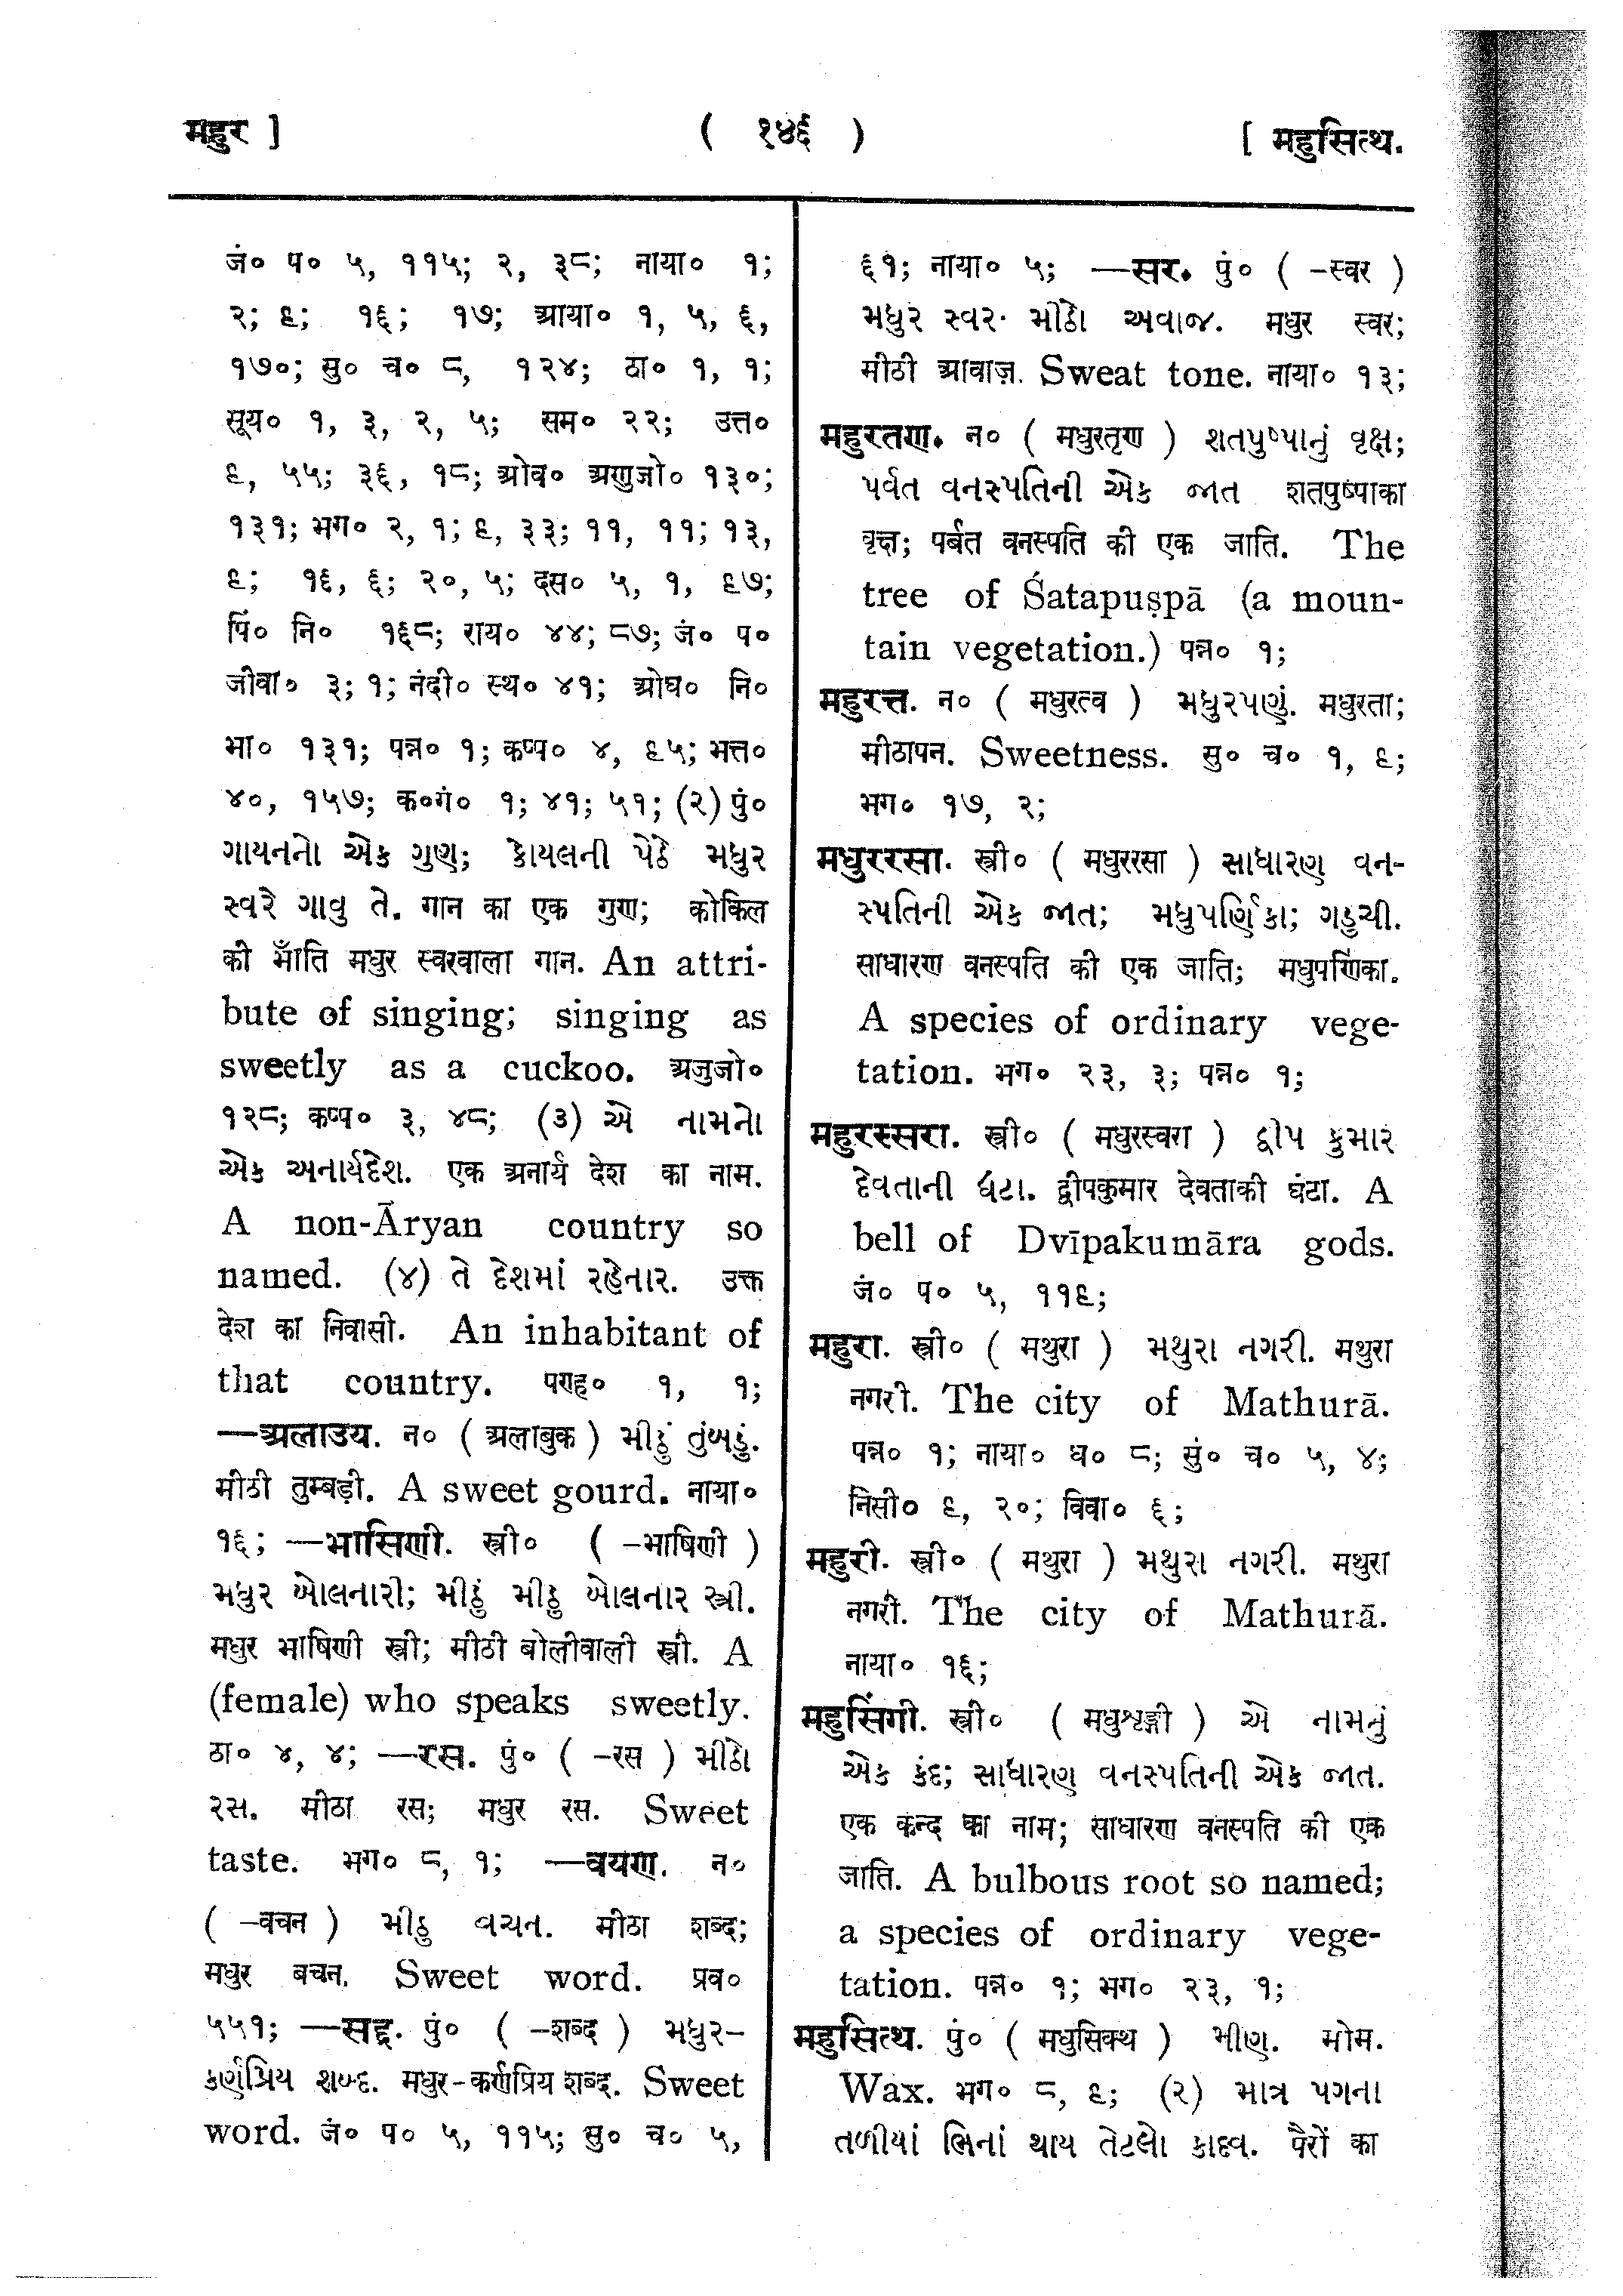 महुर ]
( १४६ )
[ महुसित्थ.
जं० प० ५, ११५; २, ३८; नाया० १;
२; ६; १६; १७; आया० १, ५, ६,
१७०; सु० च० ८, १२४; ठा० १, १;
सूय० १, ३, २, ५; सम० २२; उत्त०
६, ५५; ३६, १८; ओव० अणुजो० १३०;
१३१; भग० २, १; ६, ३३; ११, ११; १३,
६; १६, ६; २०, ५; दस० ५, १, ६७;
पिं० नि० १६८; राय० ४४; ८७; जं० प०
जीवा० ३; १; नंदी० स्थ० ४१; ओघ० नि०
भा० १३१; पन्न० १; कप्प० ४, ६५; भत्त०
४०, १५७; क०गं० १; ४१; ५१; (२) पुं०
ગાયનનો એક ગુણ; કોયલની પેઠે મધુર
સ્વરે ગાવુ તે. गान का एक गुण; कोकिल
की भाँति मधुर स्वरवाला गान. An attri-
bute of singing; singing as
sweetly as a cuckoo. अजुजो०
१२८; कप्प० ३, ४८; (૩) એ નામનો
એક અનાર્યદેશ. एक अनार्य देश का नाम.
A non-Āryan country so
named. (૪) તે દેશમાં રહેનાર. उक्त
देश का निवासी. An inhabitant of
that country. पराह० १, १;
—अलाउय. न० ( अलाबुक ) મીઠું તુંબડું.
मीठी तुम्बड़ी. A sweet gourd. नाया०
१६; —भासिणी. स्त्री० ( -भाषिणी )
મધુર બોલનારી; મીઠું મીઠુ બોલનાર સ્ત્રી.
मधुर भाषिणी स्त्री; मीठी बोलीवाली स्त्री. A
(female) who speaks sweetly.
ठा० ४, ४; —रस. पुं० ( -रस ) મીઠો
રસ. मीठा रस; मधुर रस. Sweet
taste. भग० ८, १; —वयण. न०
( -वचन ) મીઠુ વચન. मीठा शब्द;
मधुर बचन. Sweet word. प्रव०
५५१; —सद्द. पुं० ( -शब्द ) મધુર-
કર્ણપ્રિય શબ્દ. मधुर-कर्णप्रिय शब्द. Sweet
word. जं० प० ५, ११५; सु० च० ५,
६१; नाया० ५; —सर. पुं० ( -स्वर )
મધુર સ્વર. મીઠો અવાજ. मधुर स्वर;
मीठी आवाज़. Sweat tone. नाया० १३;
महुरतण. न० ( मधुरतृण ) શતપુષ્પાનું વૃક્ષ;
પર્વત વનસ્પતિની એક જાત शतपुष्पाका
वृक्ष; पर्बत वनस्पति की एक जाति. The
tree of Śatapuṣpā (a moun-
tain vegetation.) पन्न० १;
महुरत्त. न० ( मधुरत्व ) મધુરપણું. मधुरता;
मीठापन. Sweetness. सु० च० १, ६;
भग० १७, २;
मधुररसा. स्त्री० ( मधुररसा ) સાધારણ વન-
સ્પતિની એક જાત; મધુપર્ણિકા; ગડુચી.
साधारण वनस्पति की एक जाति; मधुपर्णिका.
A species of ordinary vege-
tation. भग० २३, ३; पन्न० १;
महुरस्सरा. स्त्री० ( मधुरस्वरा ) દ્વીપ કુમાર
દેવતાની ઘંટા. द्वीपकुमार देवताकी घंटा. A
bell of Dvīpakumāra gods.
जं० प० ५, ११६;
महुरा. स्त्री० ( मथुरा ) મથુરા નગરી. मथुरा
नगरी. The city of Mathurā.
पन्न० १; नाया० ध० ८; सुं० च० ५, ४;
निसी० ६, २०; विवा० ६;
महुरी. स्त्री० ( मथुरा ) મથુરા નગરી. मथुरा
नगरी. The city of Mathurā.
नाया० १६;
महुसिंगी. स्त्री० ( मधुशृङ्गी ) એ નામનું
એક કંદ; સાધારણ વનસ્પતિની એક જાત.
एक कन्द का नाम; साधारण वनस्पति की एक
जाति. A bulbous root so named;
a species of ordinary vege-
tation. पन्न० १; भग० २३, १;
महुसित्थ. पुं० ( मधुसिक्थ ) મીણ. मोम.
Wax. भग० ८, ६; (૨) માત્ર પગના
તળીયાં ભિનાં થાય તેટલો કાદવ. पैरों का